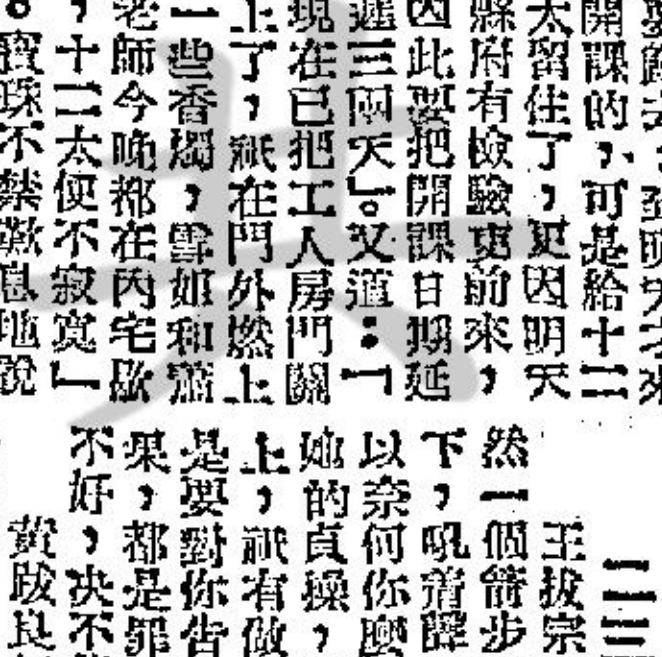 去，到明天才來
開課的，可是給十二
太留住了，更因明天
縣府有檢驗吏前來，
因此要把開課日期延
遲三兩天」。又道：「
現在已把工人房門關
上了，祇在門外燃上
一些香燭，雪如和蕭
老師今晚都在內宅歇
，十二太便不寂寞」
。寶珠不禁歎息地說
二三
王拔宗
然一個箭步
下，吼着
以奈何你麼
她的貞操，
上，祇有做
是要對你告
果，都是罪
不好，決不
黃跋良